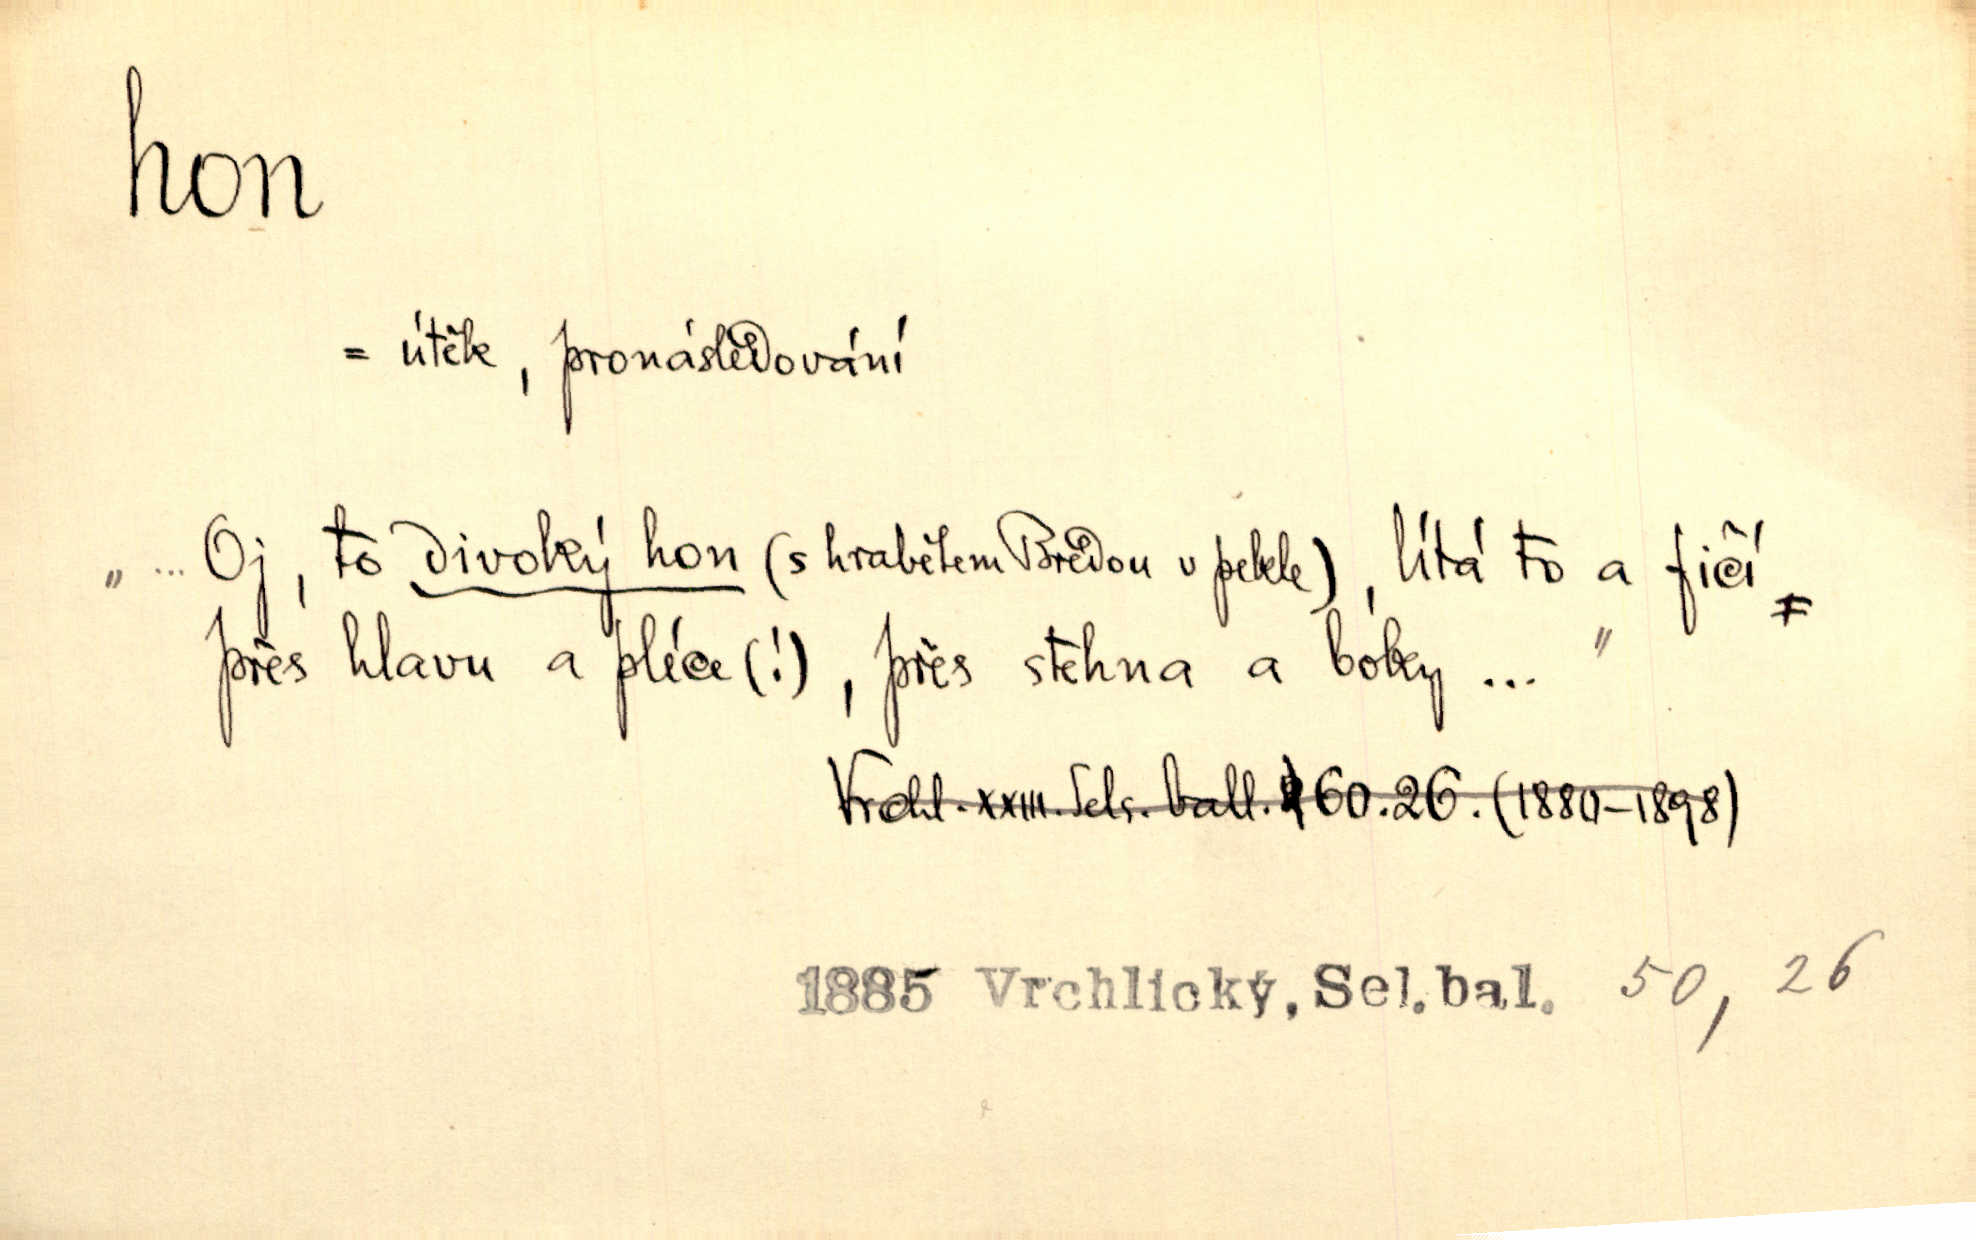 hon
= útěk, pronásledování
„ ... Oj, to divoký hon (s hrabětem Bredou v pekle), lítá to a fičí ≠
přes hlavu a pléce (!), přes stehna a boky ... "
Vrchl. XXIII. Sels. ball. 60. 26. (1880–1898)
1885 Vrchlický, Sel. bal. 50, 26